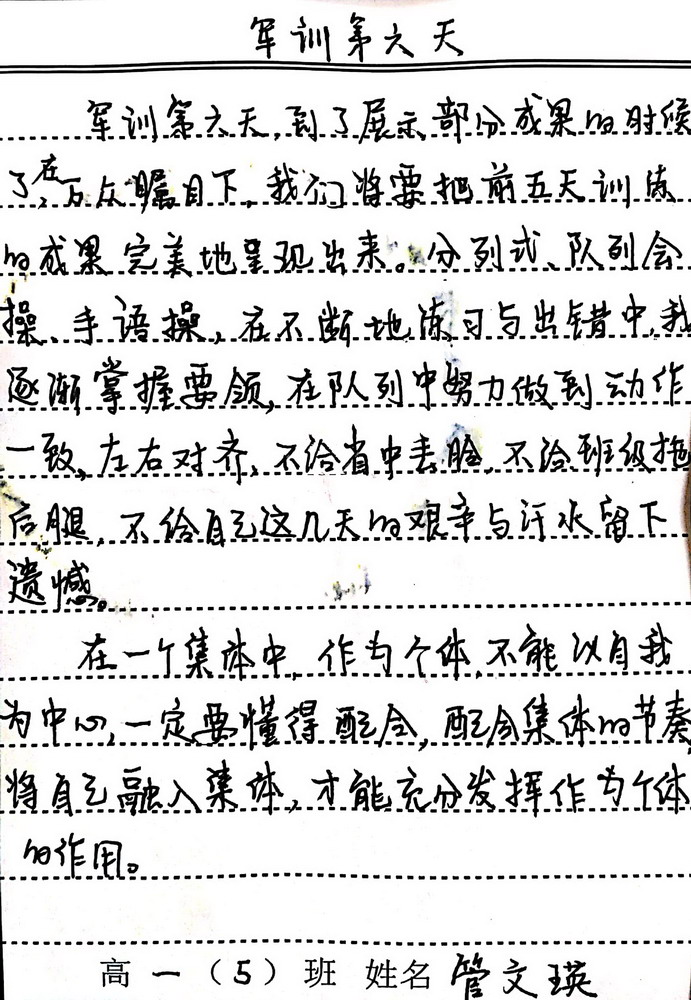 军训第六天
军训第六天,到了展示部分成果的时候
了,在万众瞩目下,我们将要把前五天训练
的成果完美地呈现出来。分列式、队列会
操、手语操,在不断地练习与出错中,我
逐渐掌握要领,在队列中努力做到动作
一致,左右对齐,不给省中丢脸,不给班级拖
后腿,不给自己这几天的艰辛与汗水留下
遗憾。
在一个集体中,作为个体,不能以自我
为中心,一定要懂得配合,配合集体的节奏,
将自己融入集体,才能充分发挥作为个体
的作用。
高一(5)班 姓名 管文瑛